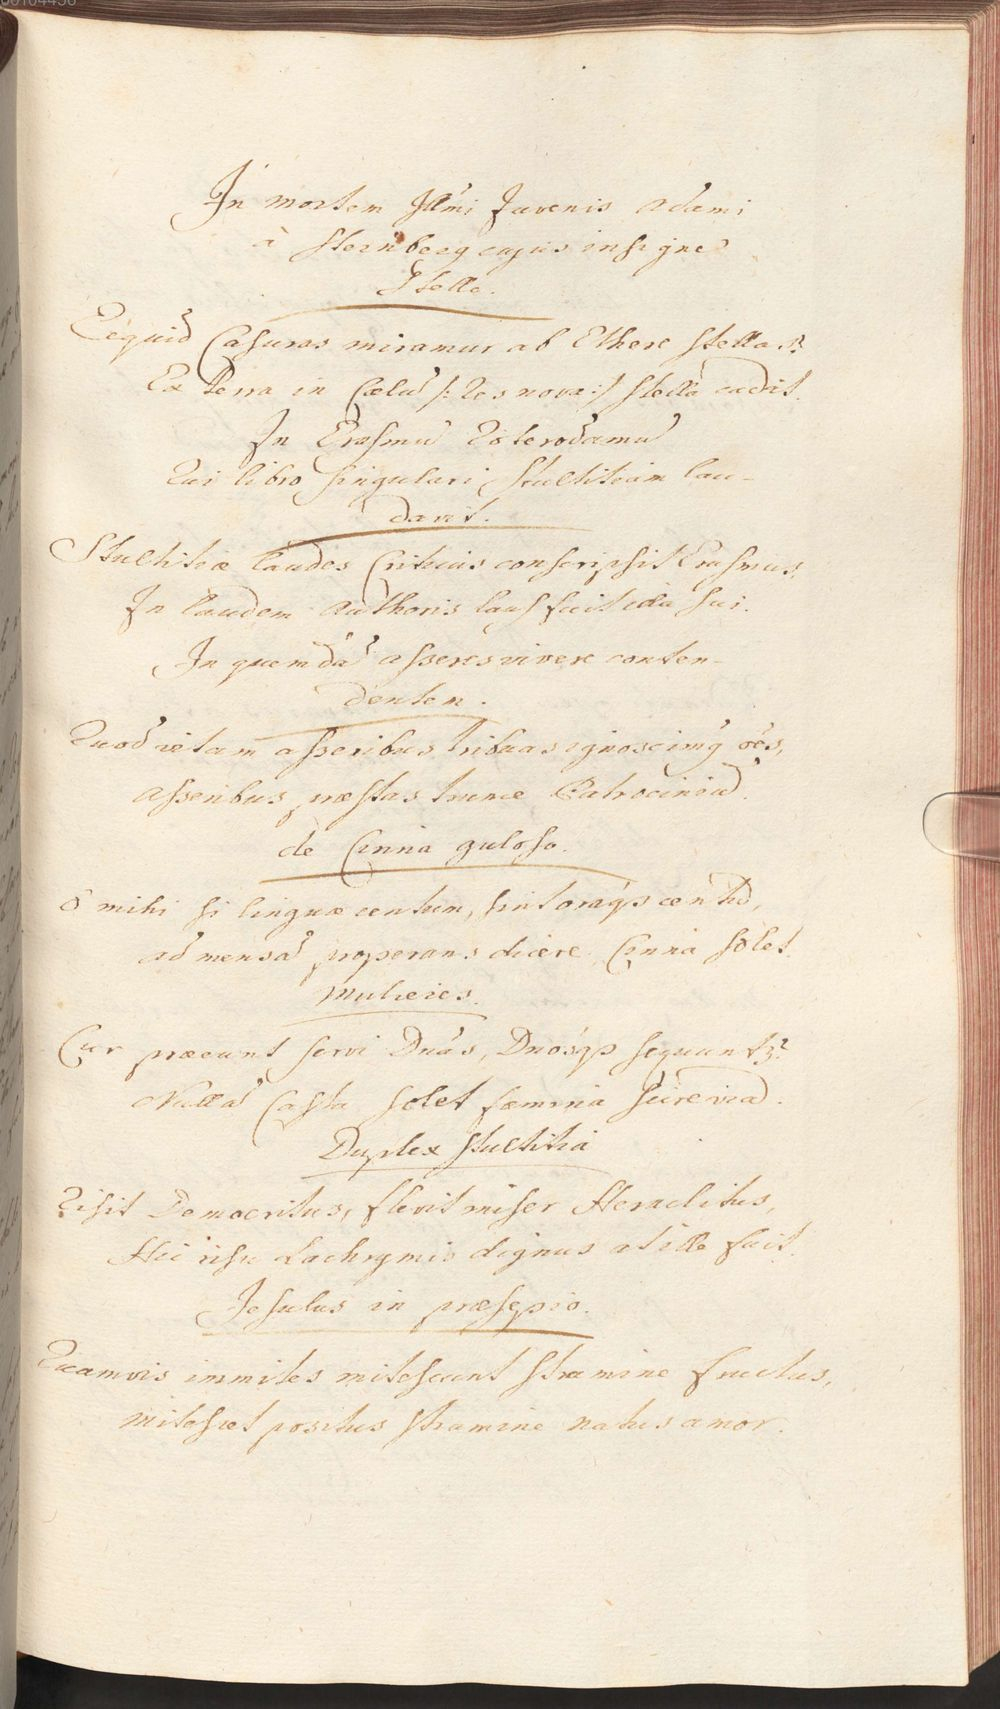 In mortem Illmi Juvenis Adami
à Sternberg cujus insigne
Stella.
Ecquid Casuras miramur ab Ethere stellas?
Ex Terra in Cœlū /: Res nova :/ stella cadit.
In Erasmū Roterodamū
Qui libro singulari, Stultitiam lau-
davit.
Stultitiæ laudes Criticus conscripsit Erasmus,
In laudem Authoris laus fuit illa sui.
In quemdā asseres vivere conten-
dentem.
Quod vitam asseribus tribuas ignoscimq oēs,
Asseribus præstas trunce Patrociniū.
de Cinna guloso.
ô mihi si linguæ centum, sint oraqs centū,
ad mensā properans dicere Cinna solet.
Mulieres.
Cur præeunt servi Dnās, Dnosqs sequunt3?
Nullā Casta solet fœmina scire viā.
Duplex stultitia
Risit Democritus, flevit miser Heraclitus,
Hic risu Lachrymis dignus at ille fuit.
Jesulus in præsepio.
Quamvis immites mitescunt stramine fructus,
mitescet positus stramine natus amor.